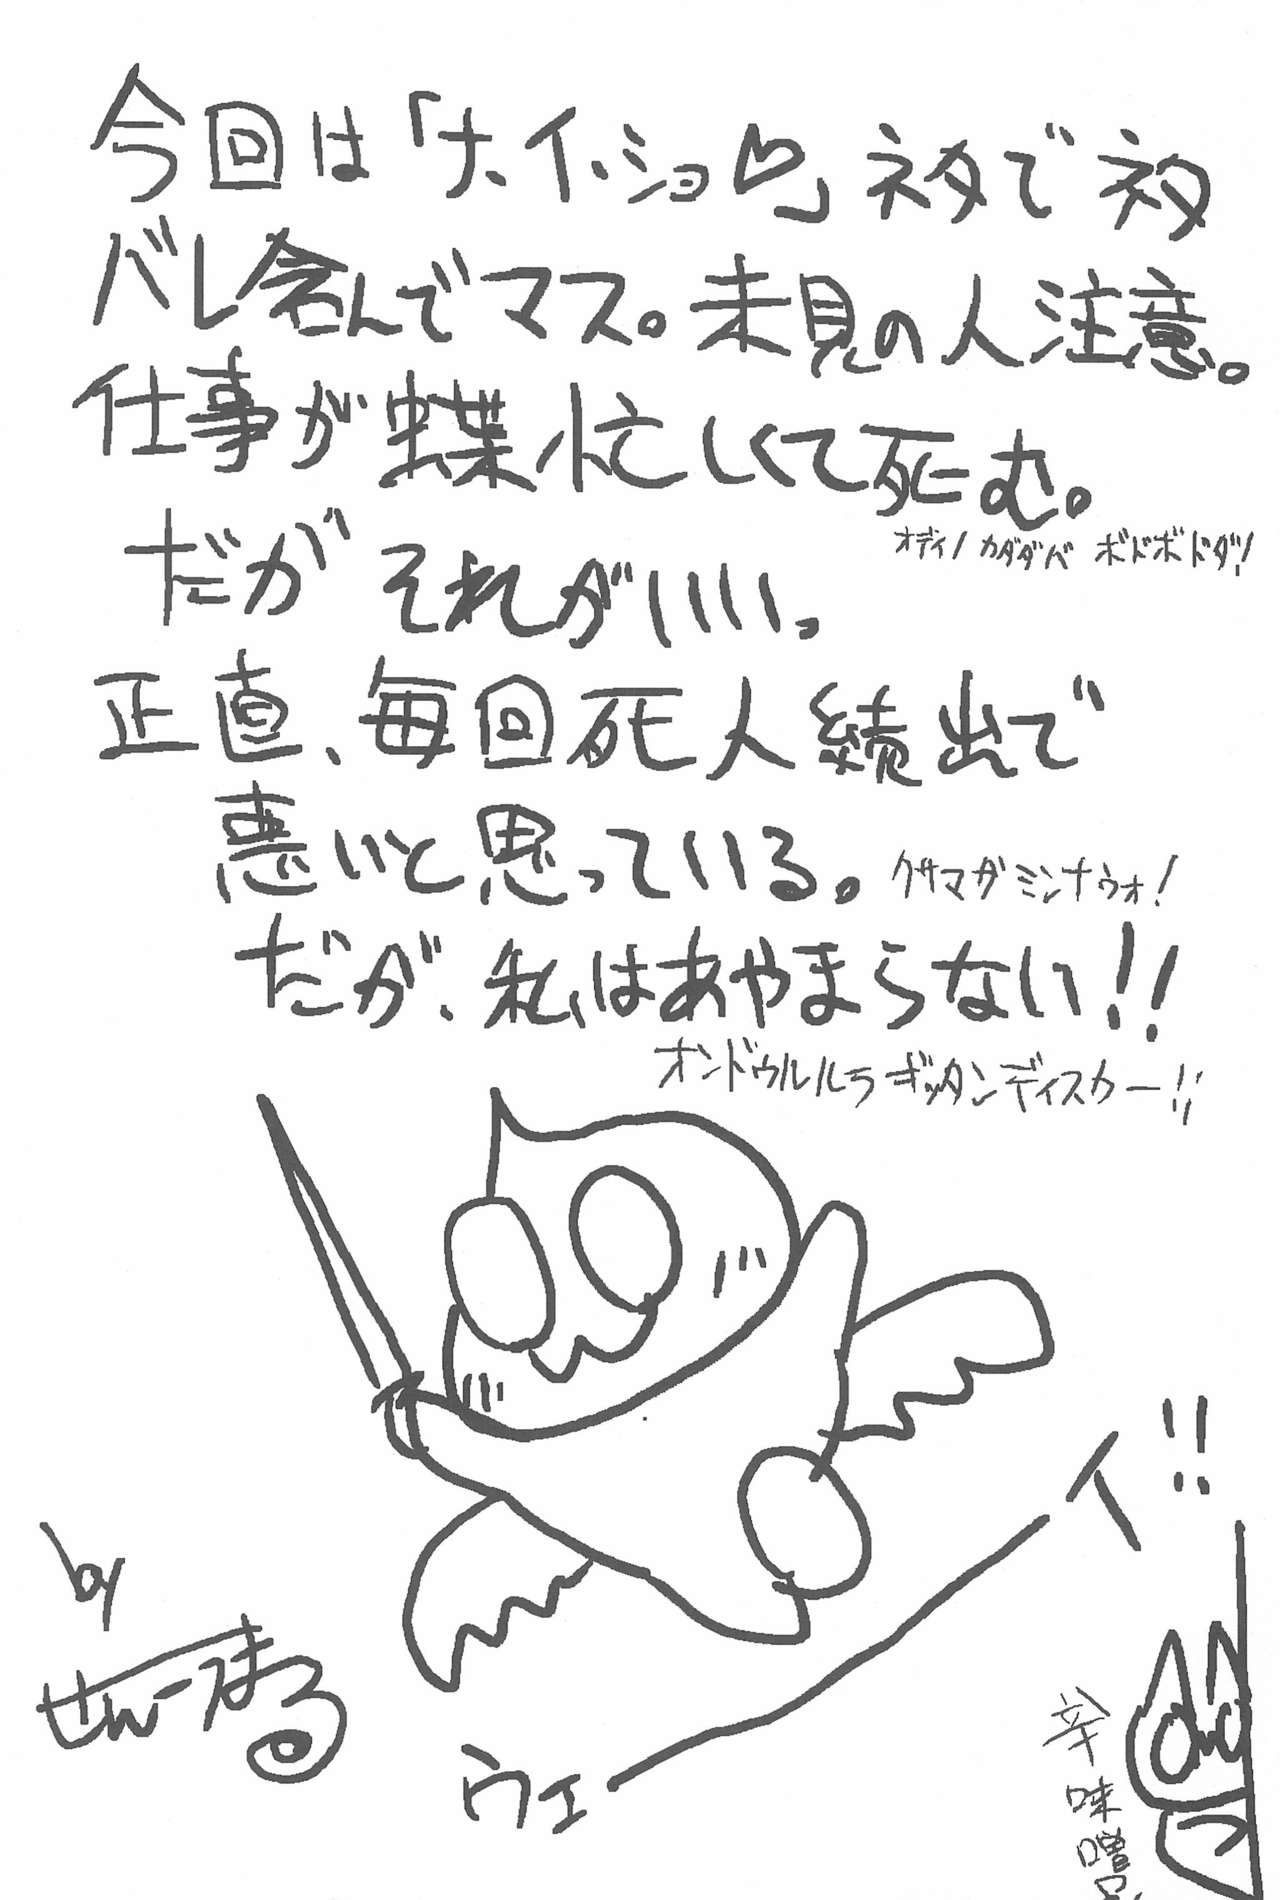 今回は「ナ、イ、ショ♡」ネタでネタ
バレ含んでマス。未見の人注意。
仕事が蝶忙しくて死む。
オデノカダダバボドボドダ!
だがそれがいい。
正直、毎回死人続出で
悪いと思っている。
クサマガミンナウォ!
だが、私はあやまらない!!
オンドゥルルラギッタンディスカー!!
ウェーイ!!
by
せんーつまる
辛味噌